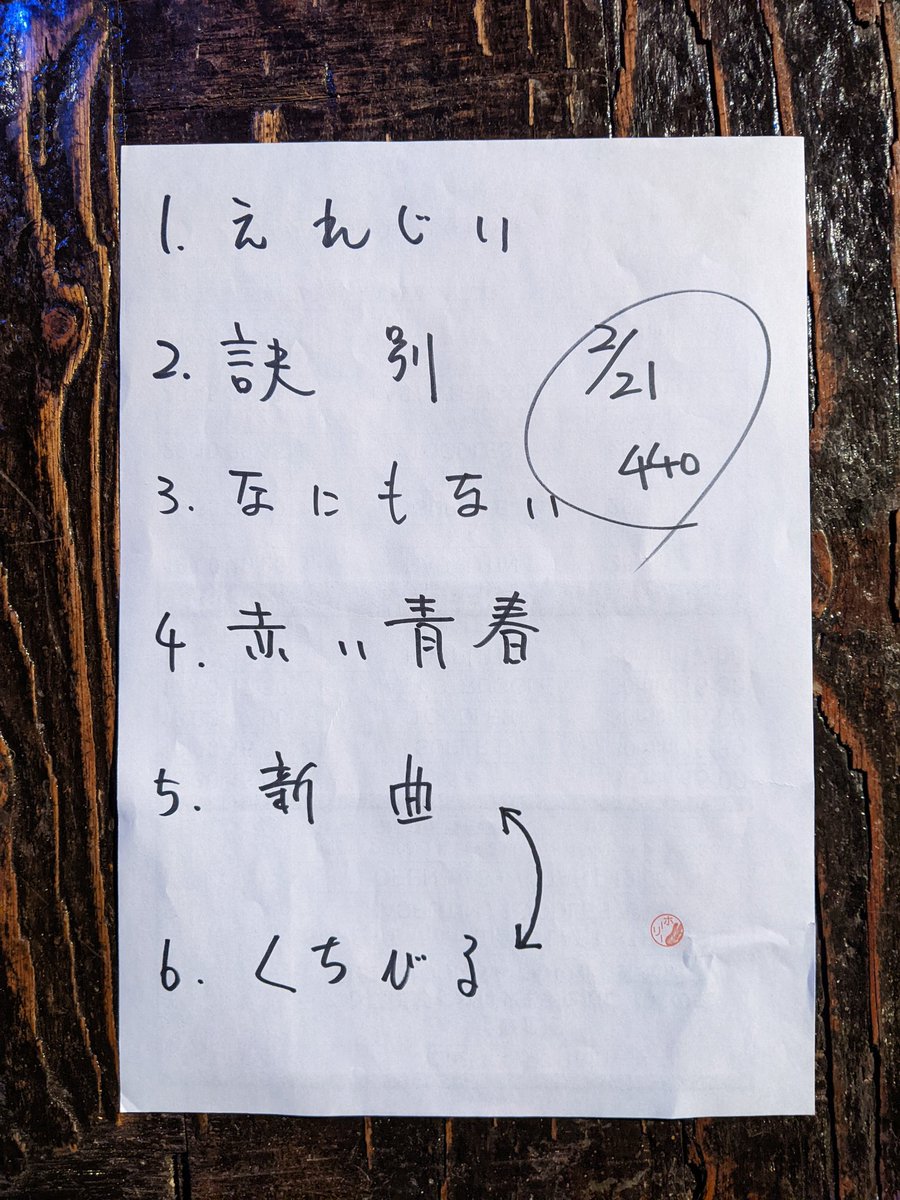 1. えれじい
2. 訣別
2/21
440
3. なにもない
4. 赤い青春
5. 新曲
6. くちびる
ホーリー